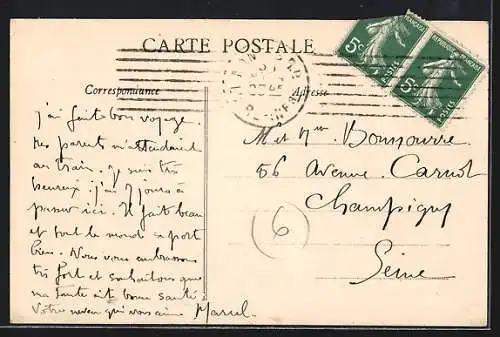 CARTE POSTALE
Correspondance
Adresse
RÉPUBLIQUE FRANÇAISE
5c
POSTES
5c
POSTES
j'ai fait bon voyage
mes parents m'attendaient
au train. j'y suis très
heureux. j'ai 7 jours à
passer ici. Il fait beau
et tout le monde se porte
bien. Nous vous embrassons
très fort et souhaitons que
ma tante ait bonne santé
Votre neveu qui vous aime Marcel.
M et Mme
56 Avenue Carnot
Champigny
Seine
6